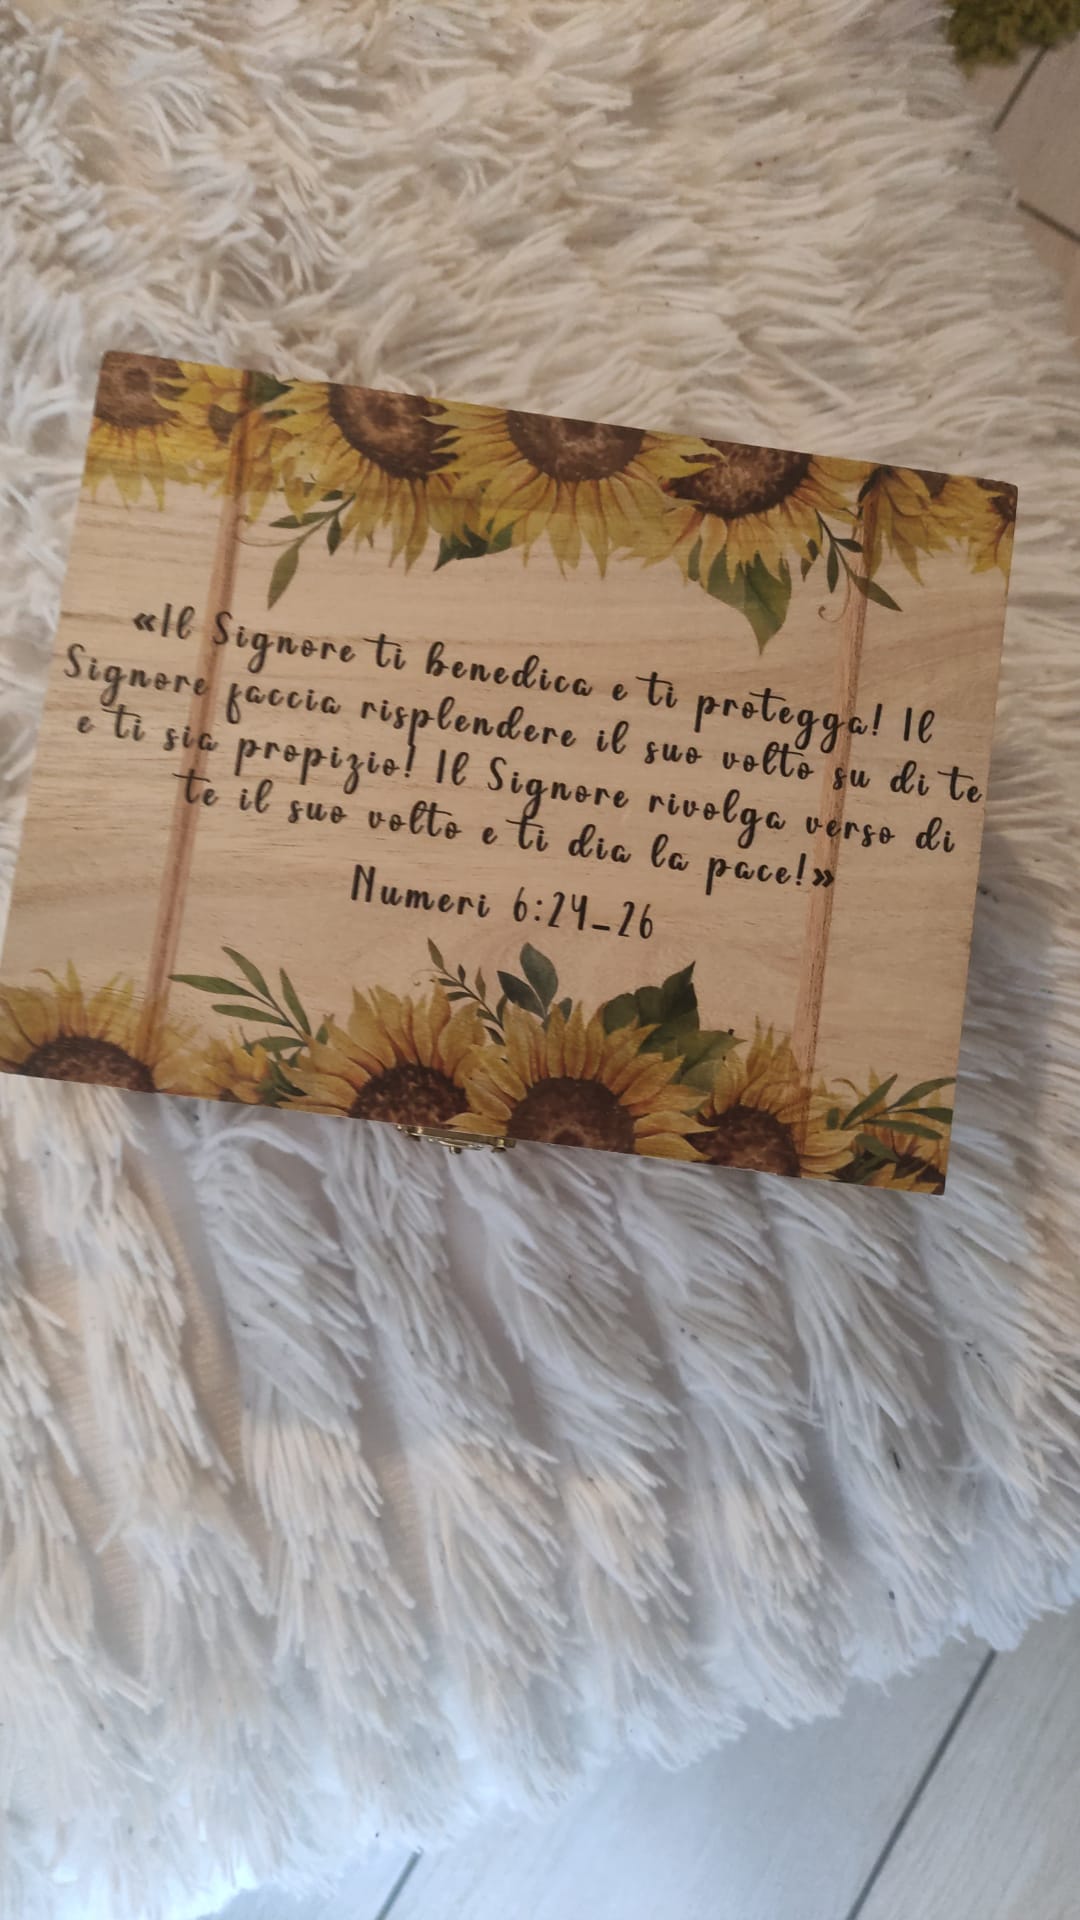 «Il Signore ti benedica e ti protegga! Il
Signore faccia risplendere il suo volto su di te
e ti sia propizio! Il Signore rivolga verso di
te il suo volto e ti dia la pace!»
Numeri 6:24_26